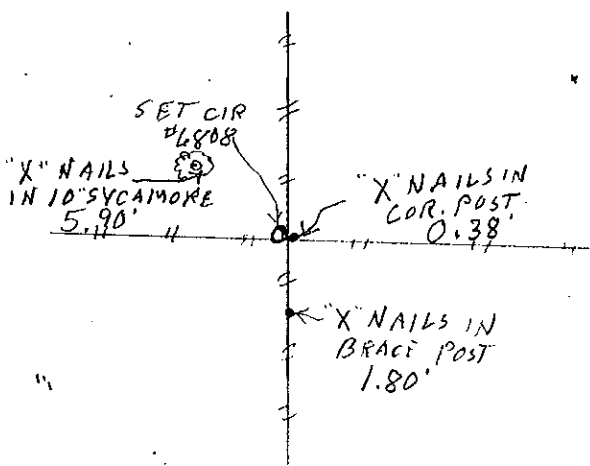 SET CIR
#6808
"X" NAILS
IN 10" SYCAMORE
5.90'
"X" NAILS IN
COR. POST
0.38'
"X" NAILS IN
BRACE POST
1.80'